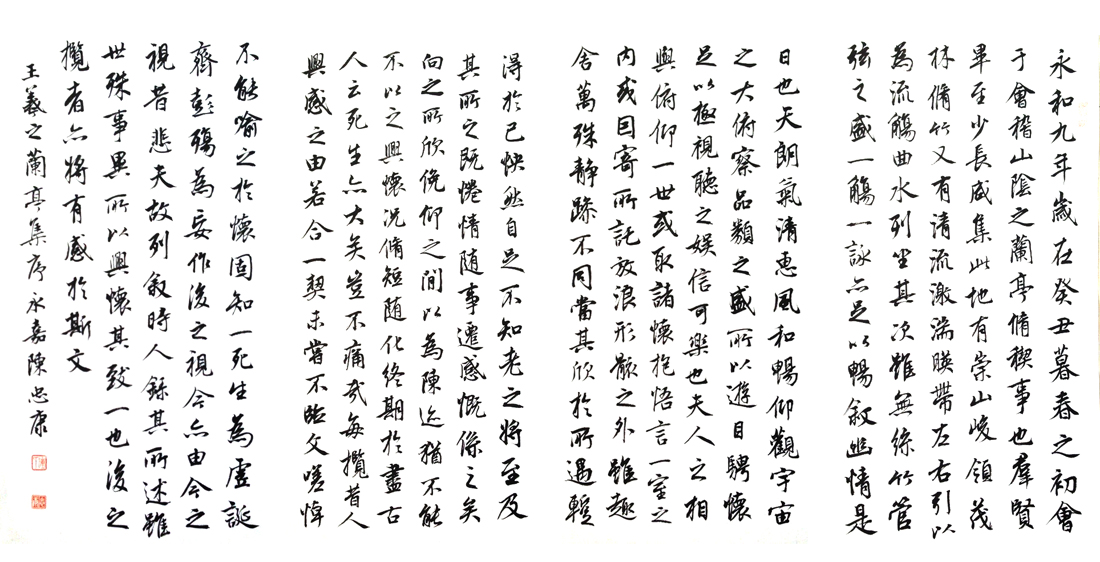 永和九年歲在癸丑暮春之初會
于會稽山陰之蘭亭脩稧事也羣賢
畢至少長咸集此地有崇山峻領茂
林脩竹又有清流激湍暎帶左右引以
為流觴曲水列坐其次雖無絲竹管
弦之盛一觴一詠亦足以暢敘幽情是
日也天朗氣清惠風和暢仰觀宇宙
之大俯察品類之盛所以遊目騁懷
足以極視聽之娛信可樂也夫人之相
與俯仰一世或取諸懷抱悟言一室之
內或因寄所託放浪形骸之外雖趣
舍萬殊静躁不同當其欣於所遇蹔
得於己快然自足不知老之將至及
其所之既惓情随事遷感慨係之矣
向之所欣俛仰之間以為陳迹猶不能
不以之興懷況脩短随化終期於盡古
人云死生亦大矣豈不痛哉每攬昔人
興感之由若合一契未嘗不臨文嗟悼
不能喻之於懷固知一死生為虛誕
齊彭殤為妄作後之視今亦由今之
視昔悲夫故列敘時人錄其所述雖
世殊事異所以興懷其致一也後之
攬者亦將有感於斯文
王羲之蘭亭集序永嘉陳忠康